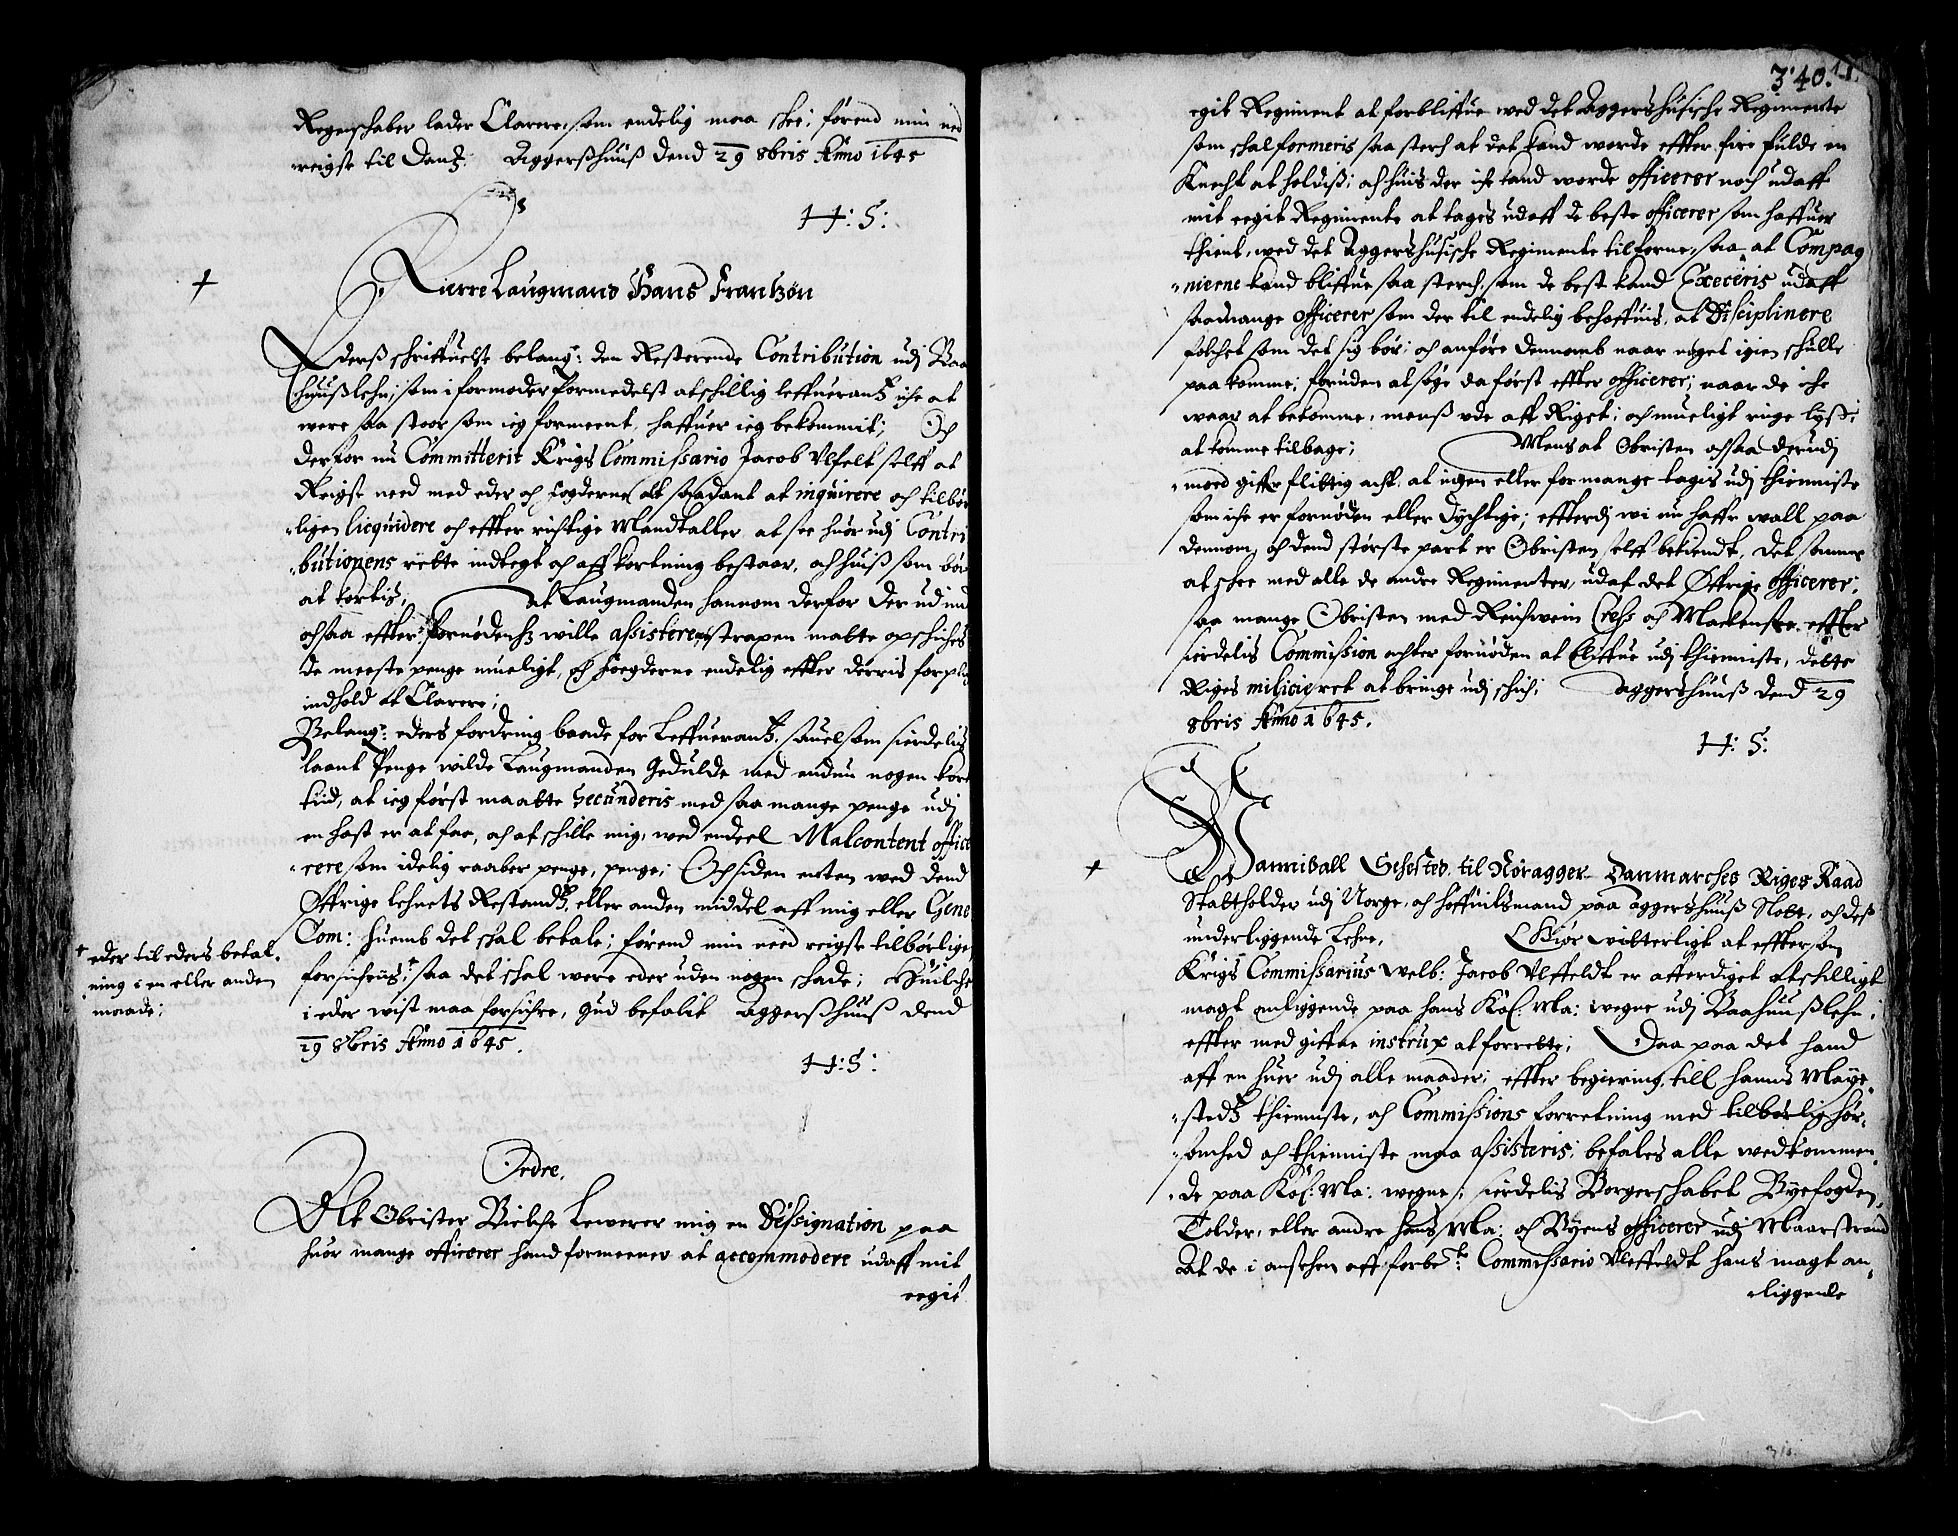 Regenschaber lader Clarere, som endelig maa skee; förend min ned
reigse til Danz: Aggerßhuuß Dend 29 8bris Anno 1645
H: S:
Kierre Laugmand Hans Frantzön
Ederß schriffuelse belang: den Resterende Contribution udj Baa
huußlehn, som i formoder formedelst atschillig leffuerantz iche at
were saa stoor som ieg formeent, haffuer ieg bekommit; Och
derfor nu Committerit Krigs Commissario Jacob Ulfelt selff at
Reigse need med eder och fogderne alt saadant at inquirere och tilbör
ligen licquidere och effter richtige Mandtaller at see huor udj Contri
butionens rette indtegt och aff kortning bestaar, och huiß som bör
at kortis; at Laugmanden hannom derfor der ud ind
ochsaa effter fornödenhz wille assistere, strapen maatte opschiches
de meeste penge mueligt, och foegderne endelig effter derris forpl
indhold at Clarere;
Belang: eders fordring baade for Leffuerantz, sauelsom sierdelis
laant Penge wilde Laugmanden Gedulde med endnu nogen kort
tiid, at ieg först maatte secunderis med saa mange penge udj
en hast er at faa, och at schille mig, wed endeel Malcontent offici
rere som idelig raaber penge, penge; Och siden enten wed dend
Öffrige lehnets Restandtz, eller anden middel aff mig eller Gene
Com: huemb det skal betale; förend min need reigse tilbörlige
forsichris saa det skal were eder uden nogen skade; Huilche
i eder wist maa forsichre, Gud befalit Aggerßhuuß dend
29 8bris Anno 1645.
H: S:
† eder til eders betal,
ning i en eller anden
maade;
Ordre.
At Obrister Bielche Leverer mig en Dessignation paa
huor mange officerer hand formeener at accommodere udaff mit
eegit
340.
egit Regiment at forbliffue wed det Aggershusische Regimente
som skal formeris saa sterch at det kand worde effter fire fulde en
Knecht at holdiß; och huis der iche kand worde officerer noch udaff
mit eegit Regimente at tages udaff de beste officerer som haffuer
thient, wed det Aggershusische Regimente tilforne, saa at Compag
nierne kand bliffue saa sterch, som de best kand Exceeris udaff
saadmange officerer som der til endelig behoffuis, at Disciplinere
folchet som det sig bör; och anföre dennomb naar noget igien schulle
paa komme; foruden at söge da först effter officerer; naar de iche
waar at bekomme, menß ude aff Riget; och mueligt ringe lyst
at komme tilbage; Mens at Obristen ochsaa derudj
moed giffr flittig acht, at ingen eller for mange tagis udj thienniste
som iche er fornöden eller dychtige; effterdj wi nu haffr wall paa
dennom, och dend störste part er Obristen selff bekiendt, det samme
at skee med alle de andre Regimenter, udaf det Öffrige officerer;
saa mange Obristen med Reichwein Creß och Mackenske effter
sierdelis Commission achter fornöden at bliffue udj thienniste, dette
Riges milicie ret at bringe udj schich; Aggershuuß dend 29
8bris Anno 1645.
H: S:
Hanniball Sehested til Nöragger Danmarches Riges Raad
Statholder udj Norge, och höffuitsmand paa Aggershuuß Slott, och deß
underliggende Lehne, Giör witterligt at efftersom
Krigs Commissarius Welb: Jacob Ulffeldt er afferdiget atschilligt
magt anliggende paa hans Kol: Ma: wegne udj Baahuußlehn,
effter med giffne instrux at forrette; Daa paa det hand
aff en huer udj alle maader; effter begiering till hans Maye
stedtz thienniste, och Commissions forretning med tilbörlig hör,
somhed och thienniste maa assisteris; befales alle wedkommen,
de paa Kol: Ma: wegne; sierdelis Borgerschabet Byefogden,
Tolder, eller andre hans Ma: och Byens officerer udj Maarstrand
At de i ansehen aff forbete: Commissario Ulffeldt hans magt an,
liggende